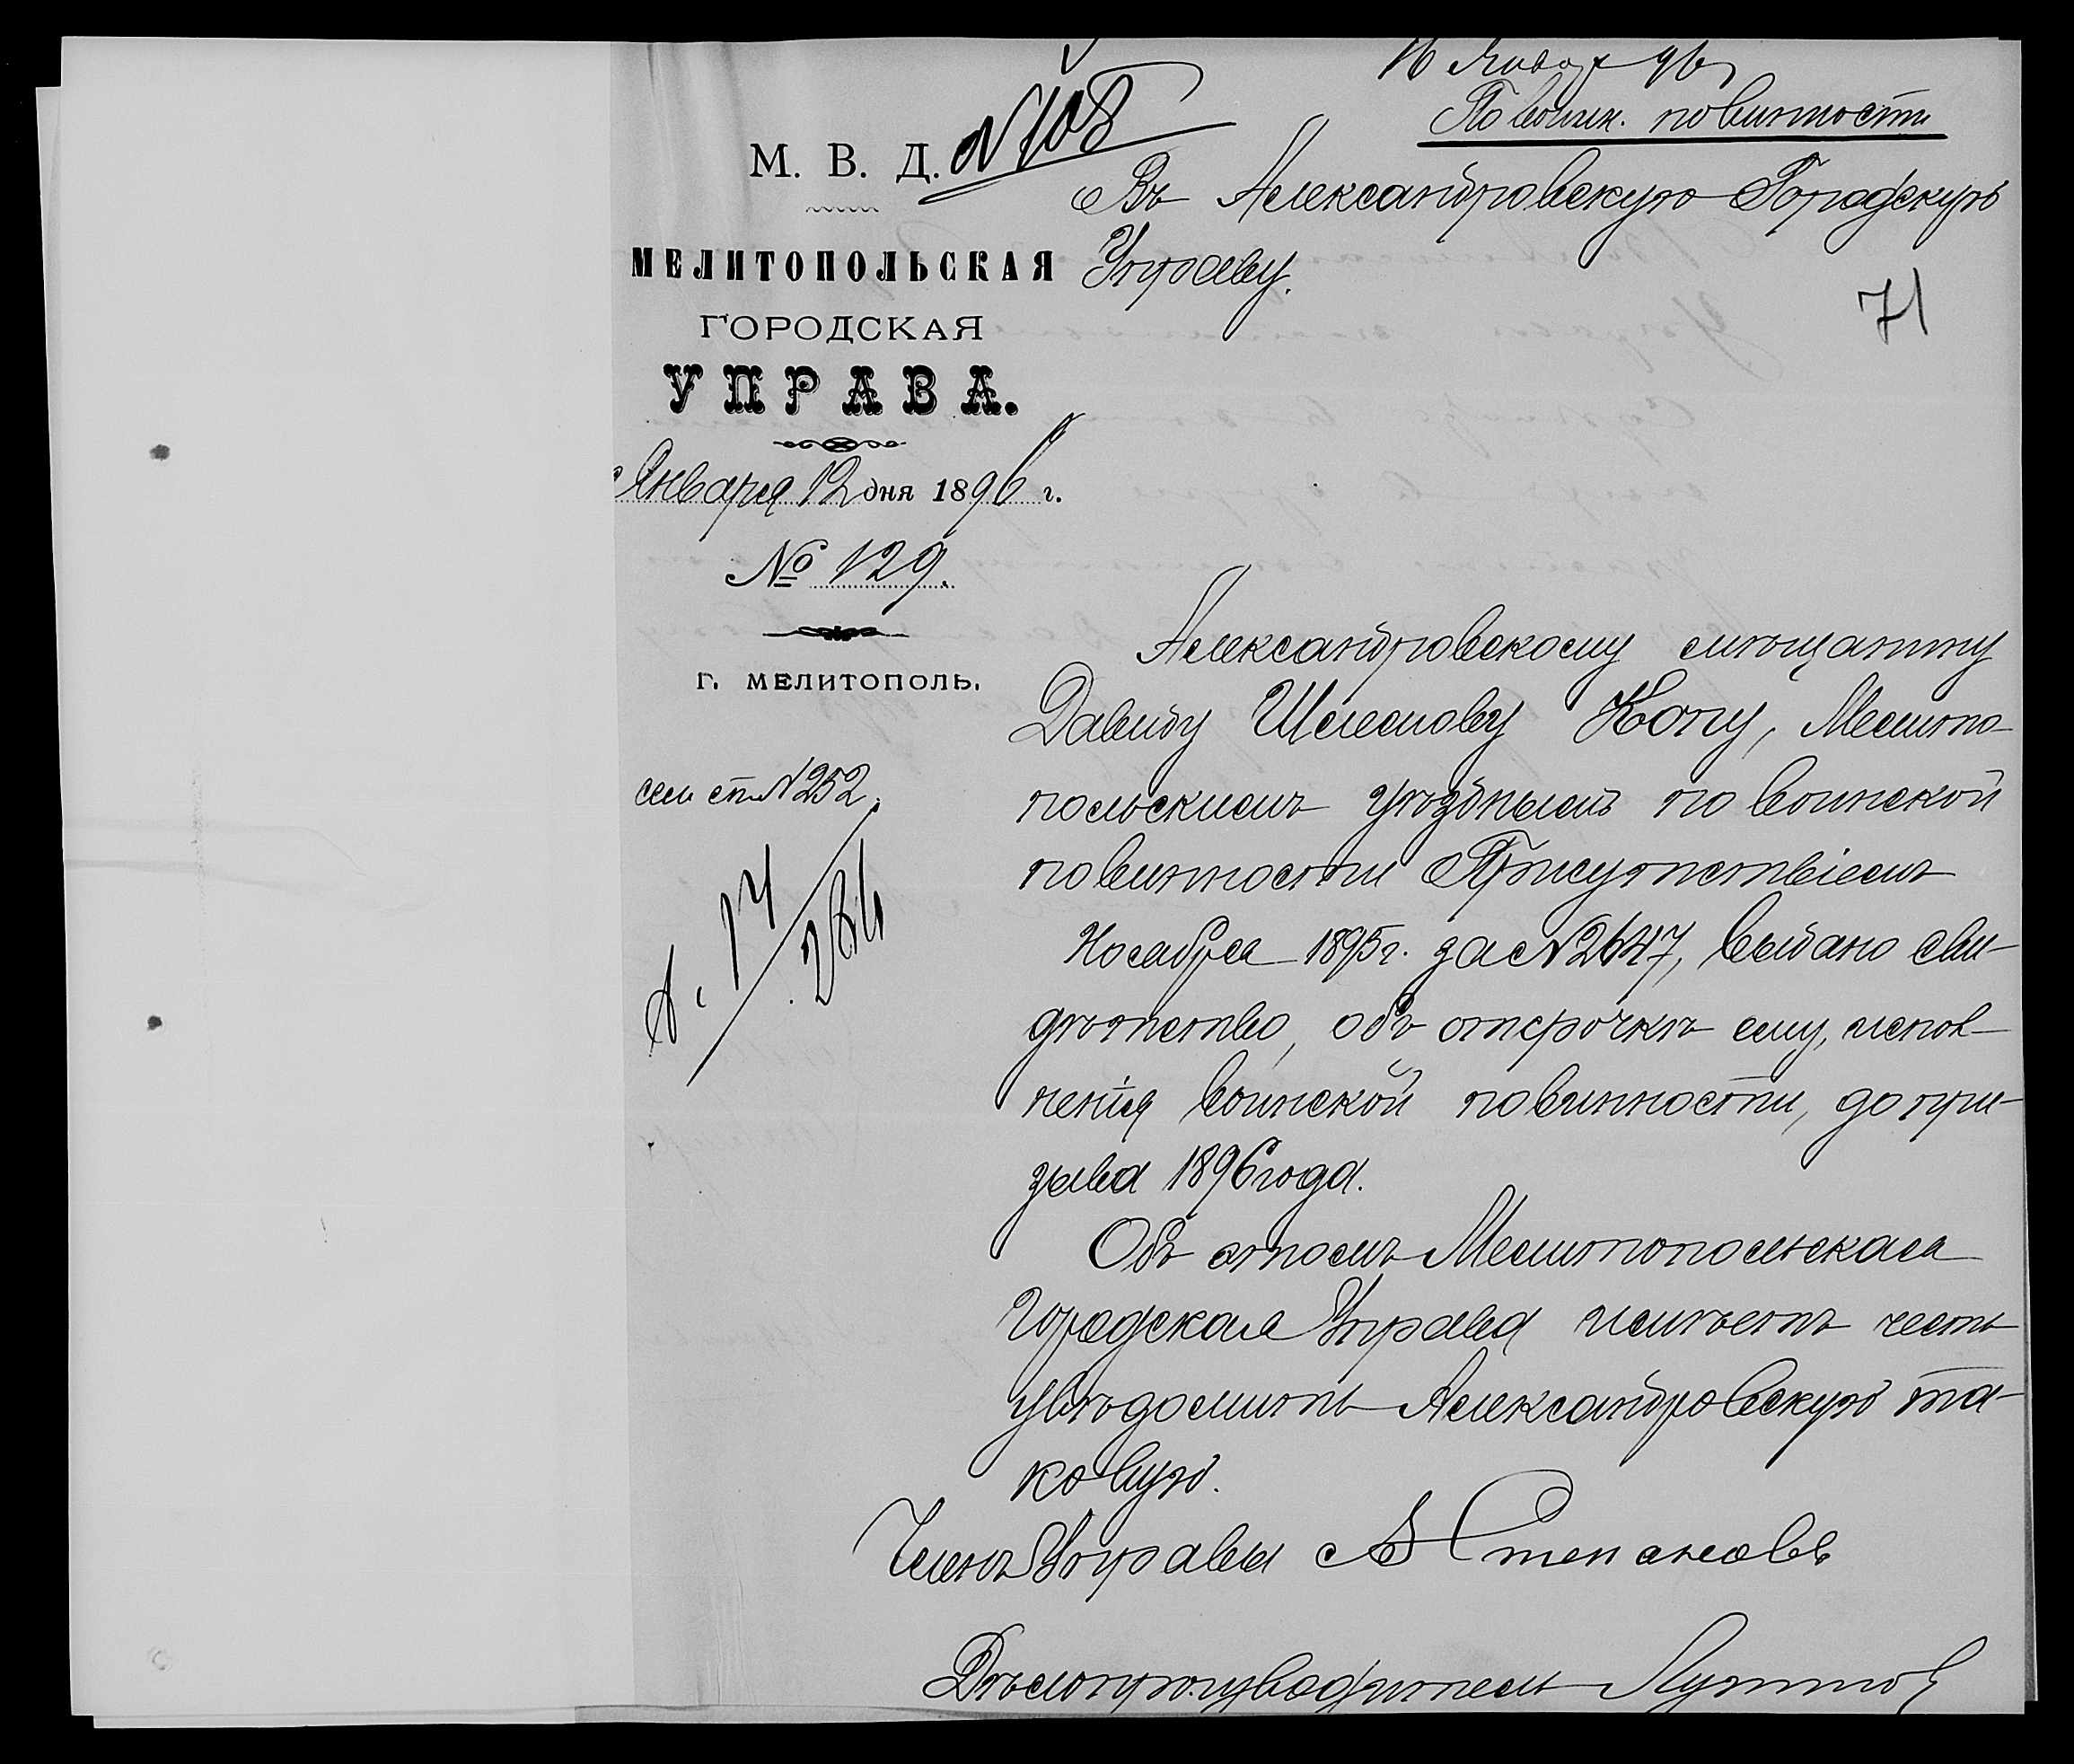 16 Января 96 г
По воинск. повинности
№ 108
М. В. Д.
МЕЛИТОПОЛЬСКАЯ
ГОРОДСКАЯ
УПРАВА.
Января 12 дня 1896 г.
№ 129.
Г. МЕЛИТОПОЛЬ.
сем сп № 252.
Въ Александровскую Городскую
Управу.
71
Александровскому мѣщанину
Давиду Шлемову Кону, Мелито-
польскимъ уѣзднымъ по воинской
повинности Присутствіемъ
Ноября 1895 г. за № 2647, выдано сви-
дѣтество, объ отсрочкѣ ему, испол-
ненія воинской повинности, до при-
зыва 1896 года.
Объ этомъ Мелитопольская
Городская Управа имѣетъ честь
увѣдомить Александровскую та-
ковую.
Членъ Управы А Степановъ
Дѣлопроизводитель